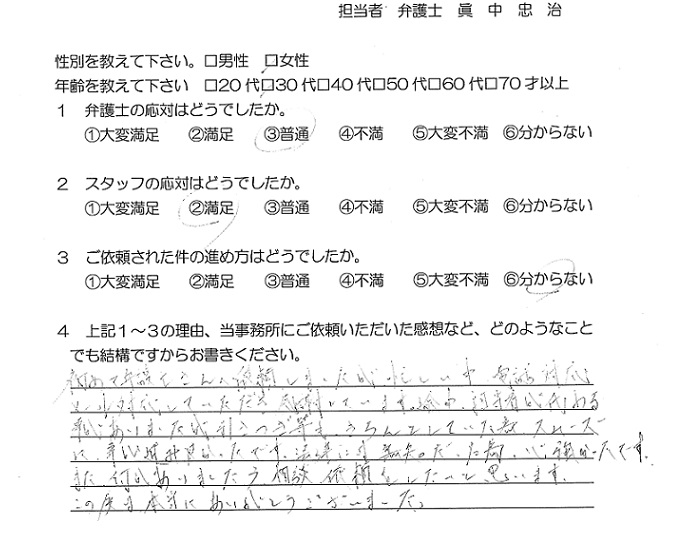 担当者 弁護士 眞 中 忠 治
性別を教えて下さい。□男性 □女性
年齢を教えて下さい □20代□30代□40代□50代□60代□70才以上
1 弁護士の応対はどうでしたか。
①大変満足 ②満足 ③普通 ④不満 ⑤大変不満 ⑥分からない
2 スタッフの応対はどうでしたか。
①大変満足 ②満足 ③普通 ④不満 ⑤大変不満 ⑥分からない
3 ご依頼された件の進め方はどうでしたか。
①大変満足 ②満足 ③普通 ④不満 ⑤大変不満 ⑥分からない
4 上記1～3の理由、当事務所にご依頼いただいた感想など、どのようなこと
でも結構ですからお書きください。
初めて弁護士さんへ依頼しましたが、忙しい中 電話対応、
メール対応していただき 感謝しています。途中、担当者が代わる
事がありましたが引きつぎ等もきちんとしていた為 スムーズに
法律に 無知だった為、心強かったです。
また 何かありましたら 相談 依頼をしたいと思います。
この度は 本当に ありがとうございました。